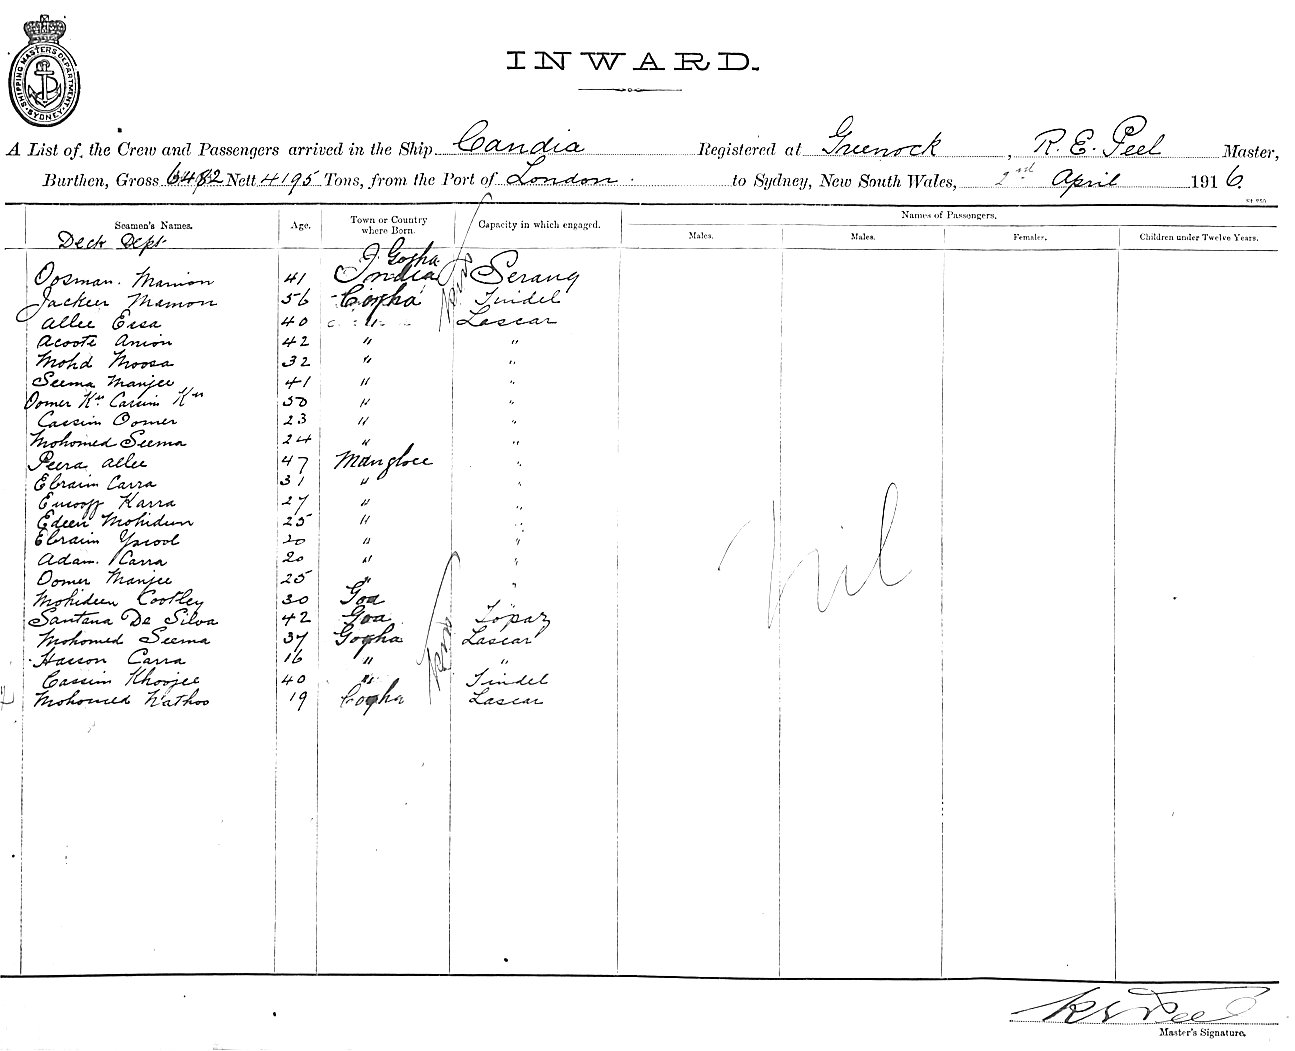 SHIPPING MASTERS DEPARTMENT · SYDNEY ·
INWARD.
A List of the Crew and Passengers arrived in the Ship Candia Registered at Greenock, R. E. Peel Master,
Burthen, Gross 6482 Nett 4195 Tons, from the Port of London. to Sydney, New South Wales, 2nd April 1916.
Seamen's Names. Age. Town or Country where Born. Capacity in which engaged. Names of Passengers.
Males. Males. Females. Children under Twelve Years.
Deck Dept.
Gogha
Oosman Mamon 41 India Serang
Jackeer Mamon 56 Gogha Tindel
Allee Eisa 40 " Lascar
Acoote Amon 42 " "
Mohd Moosa 32 " "
Seema Manjee 41 " "
Oomer Kn Cassim Kn 50 " "
Cassim Oomer 23 " "
Mohomed Seema 24 " "
Peera Allee 47 Manglore "
Ebraim Carra 31 " "
Eusoof Karra 27 " "
Edeen Mohideen 25 " "
Ebraim Ysoob 20 " "
Adam Karra 20 " "
Oomer Manjee 25 " "
Mohideen Cootley 30 Goa
Santana De Silva 42 Goa Topaz
Mohomed Seema 37 Gogha Lascar
Hasson Carra 16 " "
Cassim Khoojee 40 " Tindel
Mohomed Nathoo 19 Gogha Lascar
Nil
R E Peel
Master's Signature.